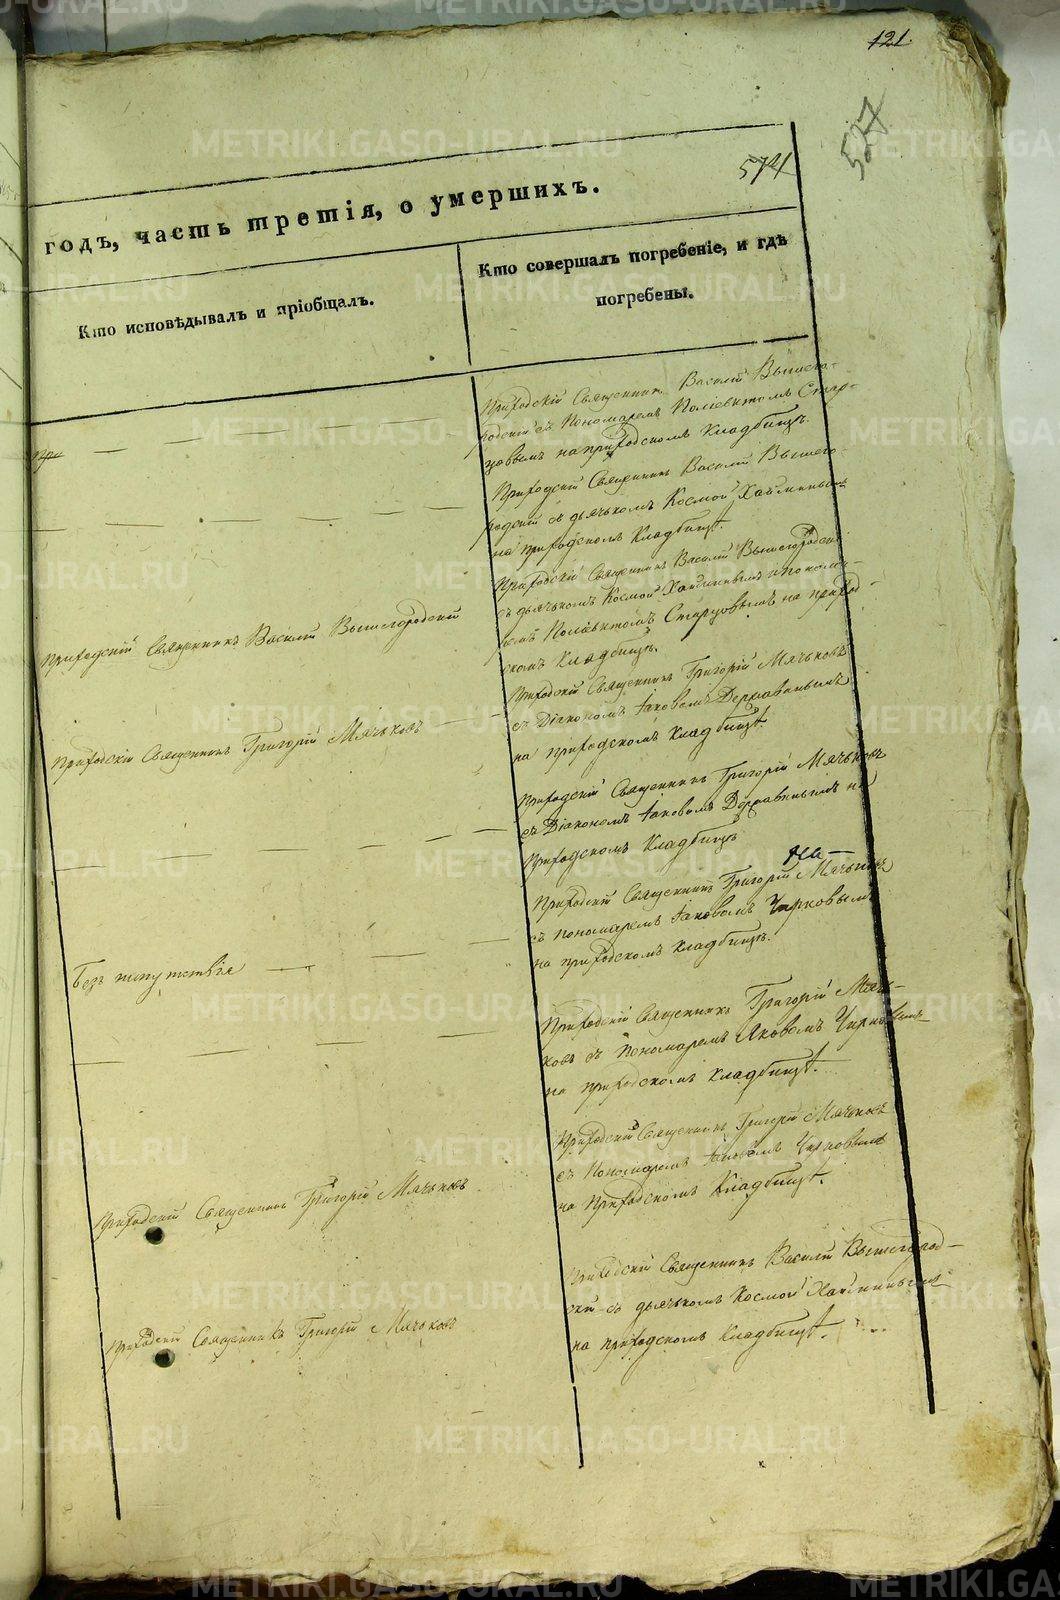 121.
527
571
годъ, часть третія, о умершихъ.
Кто исповѣдывалъ и пріобщалъ.
Кто совершалъ погребеніе, и гдѣ
погребены.
Приходскій Священникъ Василій Вышего-
родскій съ Пономаремъ Поліевктомъ Стар-
цовымъ на приходскомъ Кладбищѣ.
Приходскій Священникъ Василій Вышего-
родскій съ дьячькомъ Космой
на приходскомъ Кладбищѣ.
Приходскій Священникъ Василій Вышегородскій
Приходскій Священникъ Василій Вышегородскій
съ дьячькомъ Космой и понома-
ремъ Поліевктомъ Старцовымъ на приход-
скомъ Кладбищѣ.
Приходскій Священникъ Григорій Мячьковъ
Приходскій Священникъ Григорій Мячьковъ
съ Діакономъ Іаковомъ Державинымъ
на приходскомъ Кладбищѣ.
Приходскій Священникъ Григорій Мячьковъ
съ Діакономъ Іаковомъ Державинымъ на
приходскомъ Кладбищѣ
Безъ напутствія
Приходскій Священникъ Григорій Мячьковъ
съ пономаремъ Іаковомъ Чирковымъ
на приходскомъ Кладбищѣ.
Приходскій Священникъ Григорій Мячь-
ковъ съ Пономаремъ Яковомъ Чирковымъ
на приходскомъ Кладбищѣ.
Приходскій Священникъ Григорій Мячьковъ
Приходскій Священникъ Григорій Мячьковъ
съ Пономаремъ Іаковомъ Чирковымъ
на Приходскомъ Кладбищѣ.
Приходскій Священникъ Григорій Мячьковъ
Приходскій Священникъ Василій Вышегород-
скій съ дьячькомъ Космой
на приходскомъ Кладбищѣ.
METRIKI.GASO-URAL.RU